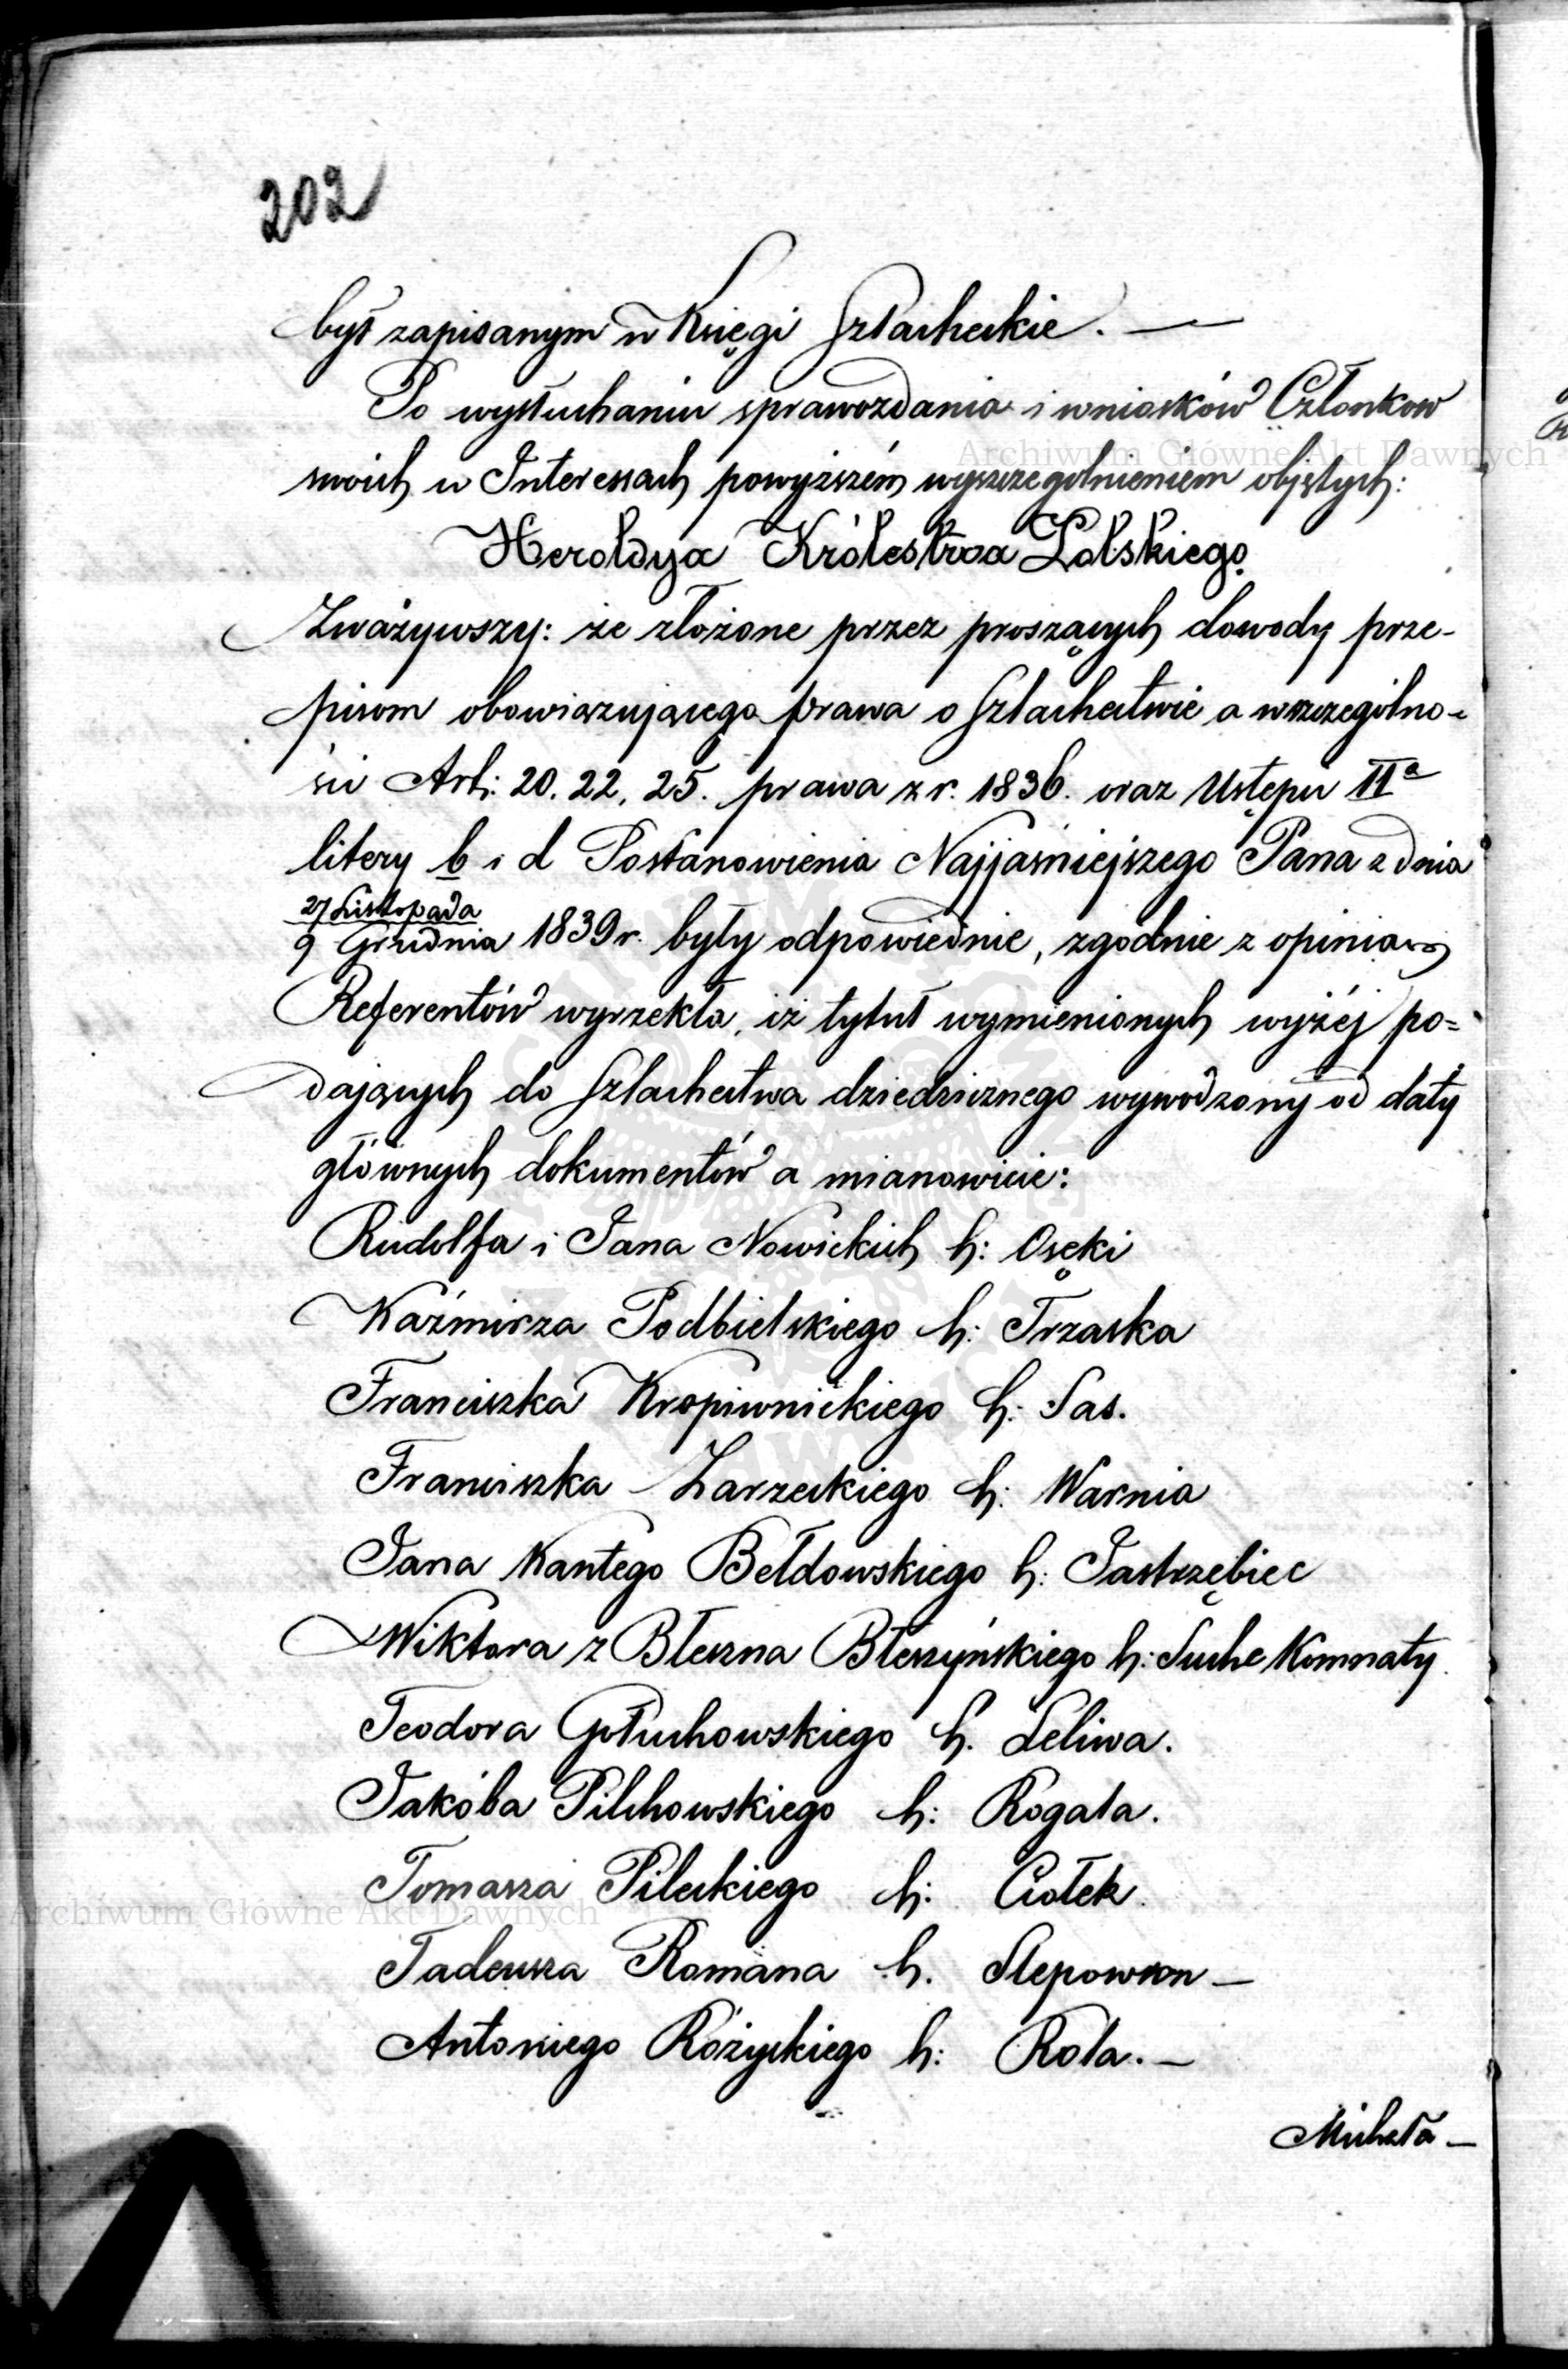 202
był zapisanym w Księgi Szlacheckie. —
Po wysłuchaniu sprawozdania i wniosków Członkow
swoich w Interessach powyższém wyszczegolnieniem objętych:
Heroldya Królestwa Polskiego
Zważywszy: że złożone przez proszących dowody prze-
pisom obowiązującego prawa o Szlachectwie a wszczególno-
ści Art: 20. 22. 25. prawa z r. 1836. oraz Ustępu IIa
litery b i d Postanowienia Najjaśniejszego Pana z dnia
27 Listopada
9 Grudnia 1839 r. były odpowiednie, zgodnie z opinią
Referentów wyrzekła, iż tytuł wymienionych wyżéj po=
dających do Szlachectwa dziedzicznego wywodzony od daty
głównych dokumentów a mianowicie:
Rudolfa i Jana Nowickich h: Osęki
Kaźmirza Podbielskiego h: Trzaska
Franciszka Kropiwnickiego h: Sas.
Franciszka Zarzeckiego h: Warnia
Jana Kantego Bełdowskiego h: Jastrzębiec
Wiktora z Błeszna Błeszyńskiego h: Suche Komnaty
Teodora Gołuchowskiego h. Leliwa.
Jakóba Pilchowskiego h: Rogala.
Tomasza Pileckiego h: Ciołek.
Tadeusza Romana h. Slepowron —
Antoniego Różyckiego h: Rola. —
Michała —
Archiwum Główne Akt Dawnych
Archiwum Główne Akt Dawnych